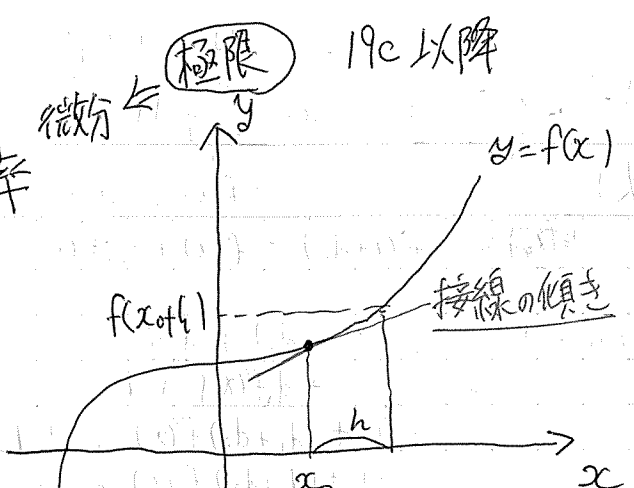 極限 19c以降
微分 ⇐
y
率
y=f(x)
f(x₀+h)
接線の傾き
h
x₀
x